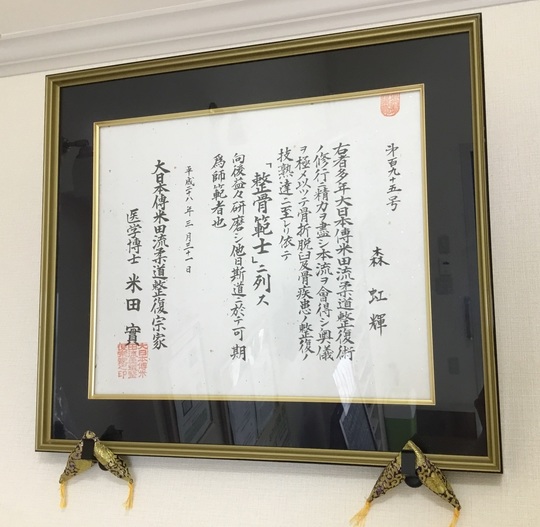 第百九十五号
森虹輝
右者多年大日本傳米田流柔道整復術
ノ修行ニ精力ヲ盡シ本流ヲ會得シ奥儀
ヲ極メ以ツテ骨折脱臼及骨疾患ノ整復ノ
技熟達ニ至レリ依テ
「整骨範士」ニ列ス
向後益々研磨シ他日斯道ニ於テ可期
為師範者也
平成二十八年三月三十一日
大日本傳米田流柔道整復宗家
医学博士 米田實